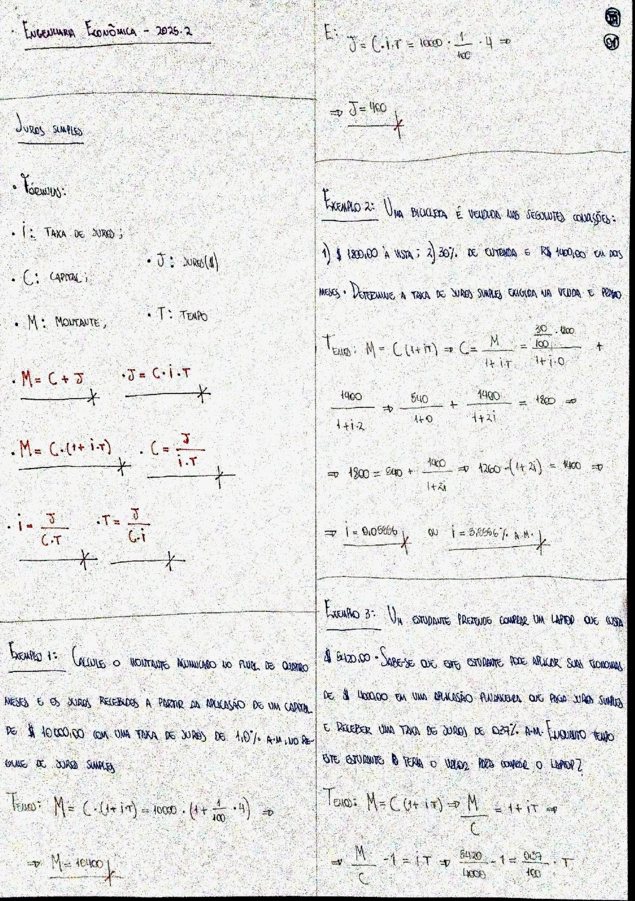 · ENGENHARIA ECONÔMICA - 2025.2
JUROS SIMPLES
· FÓRMULAS:
· i: TAXA DE JUROS;
· J: JUROS($)
· C: CAPITAL;
· M: MONTANTE,
· T: TEMPO
· M = C + J · J = C · i · T
· M = C · (1 + i · T) · C = J / i · T
· i = J / C · T · T = J / C · i
EXEMPLO 1: CALCULE O MONTANTE ACUMULADO NO FINAL DE QUATRO
MESES E OS JUROS RECEBIDOS A PARTIR DA APLICAÇÃO DE UM CAPITAL
DE $ 10 000,00 COM UMA TAXA DE JUROS DE 1,0% A.M, NO RE-
GIME DE JUROS SIMPLES
TEMOS: M = C · (1 + i · T) = 10000 · (1 + 1/100 · 4) ⇒
⇒ M = 10400
01
E: J = C · i · T = 10000 · 1/100 · 4 ⇒
⇒ J = 400
EXEMPLO 2: UMA BICICLETA É VENDIDA NAS SEGUINTES CONDIÇÕES:
1) $ 1800,00 À VISTA; 2) 30% DE ENTRADA E R$ 1400,00 EM DOIS
MESES · DETERMINE A TAXA DE JUROS SIMPLES EXIGIDA NA VENDA A PRAZO
TEMOS: M = C (1 + iT) ⇒ C = M / 1 + i · T = 30/100 · 1800 / 1 + i · 0 +
1400 / 1 + i · 2 ⇒ 540 / 1 + 0 + 1400 / 1 + 2i = 1800 ⇒
⇒ 1800 = 540 + 1400 / 1 + 2i ⇒ 1260 · (1 + 2i) = 1400 ⇒
⇒ i = 0,05556 OU i = 5,5556% A.M.
EXEMPLO 3: UM ESTUDANTE PRETENDE COMPRAR UM LAPTOP QUE CUSTA
$ 5420,00 · SABE-SE QUE ESTE ESTUDANTE PODE APLICAR SUAS ECONOMIAS
DE $ 4000,00 EM UMA APLICAÇÃO FINANCEIRA QUE PAGA JUROS SIMPLES
E RECEBER UMA TAXA DE JUROS DE 0,97% A.M. ENQUANTO TEMPO
ESTE ESTUDANTE TERIA O VALOR PARA COMPRAR O LAPTOP?
TEMOS: M = C (1 + iT) ⇒ M / C = 1 + iT ⇒
⇒ M / C - 1 = iT ⇒ 5420 / 4000 - 1 = 0,97 / 100 · T